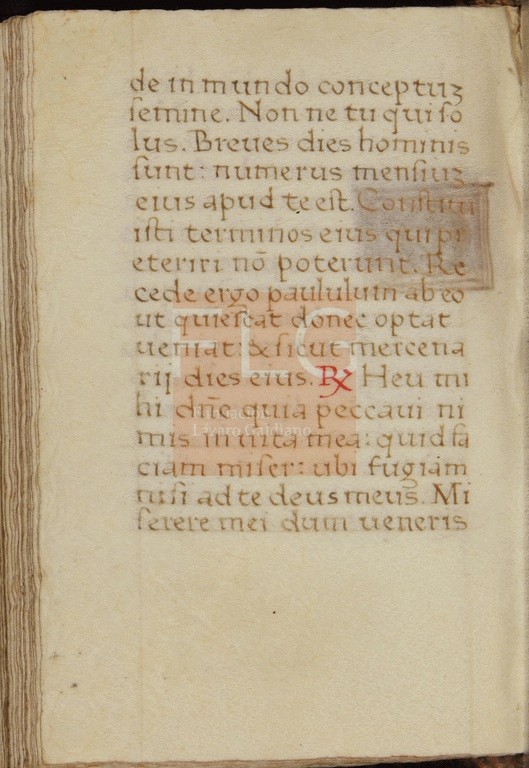 de in mundo conceptuꝫ
ſemine. Non ne tu qui ſo
lus. Breves dies hominis
ſunt: numerus menſiuꝫ
eius apud te eſt. Conſtitu
iſti terminos eius qui pr
eteriri nō poterunt. Re
cede ergo paululum ab eo
ut quieſcat donec optat
veniat: & ſicut mercena
rij dies eius. ℞ Heu mi
hi dn̄e quia peccavi ni
mis in vita mea: quid fa
ciam miſer: ubi fugiam
niſi ad te deus meus. Mi
ſerere mei dum veneris
FLG
Lázaro Galdiano